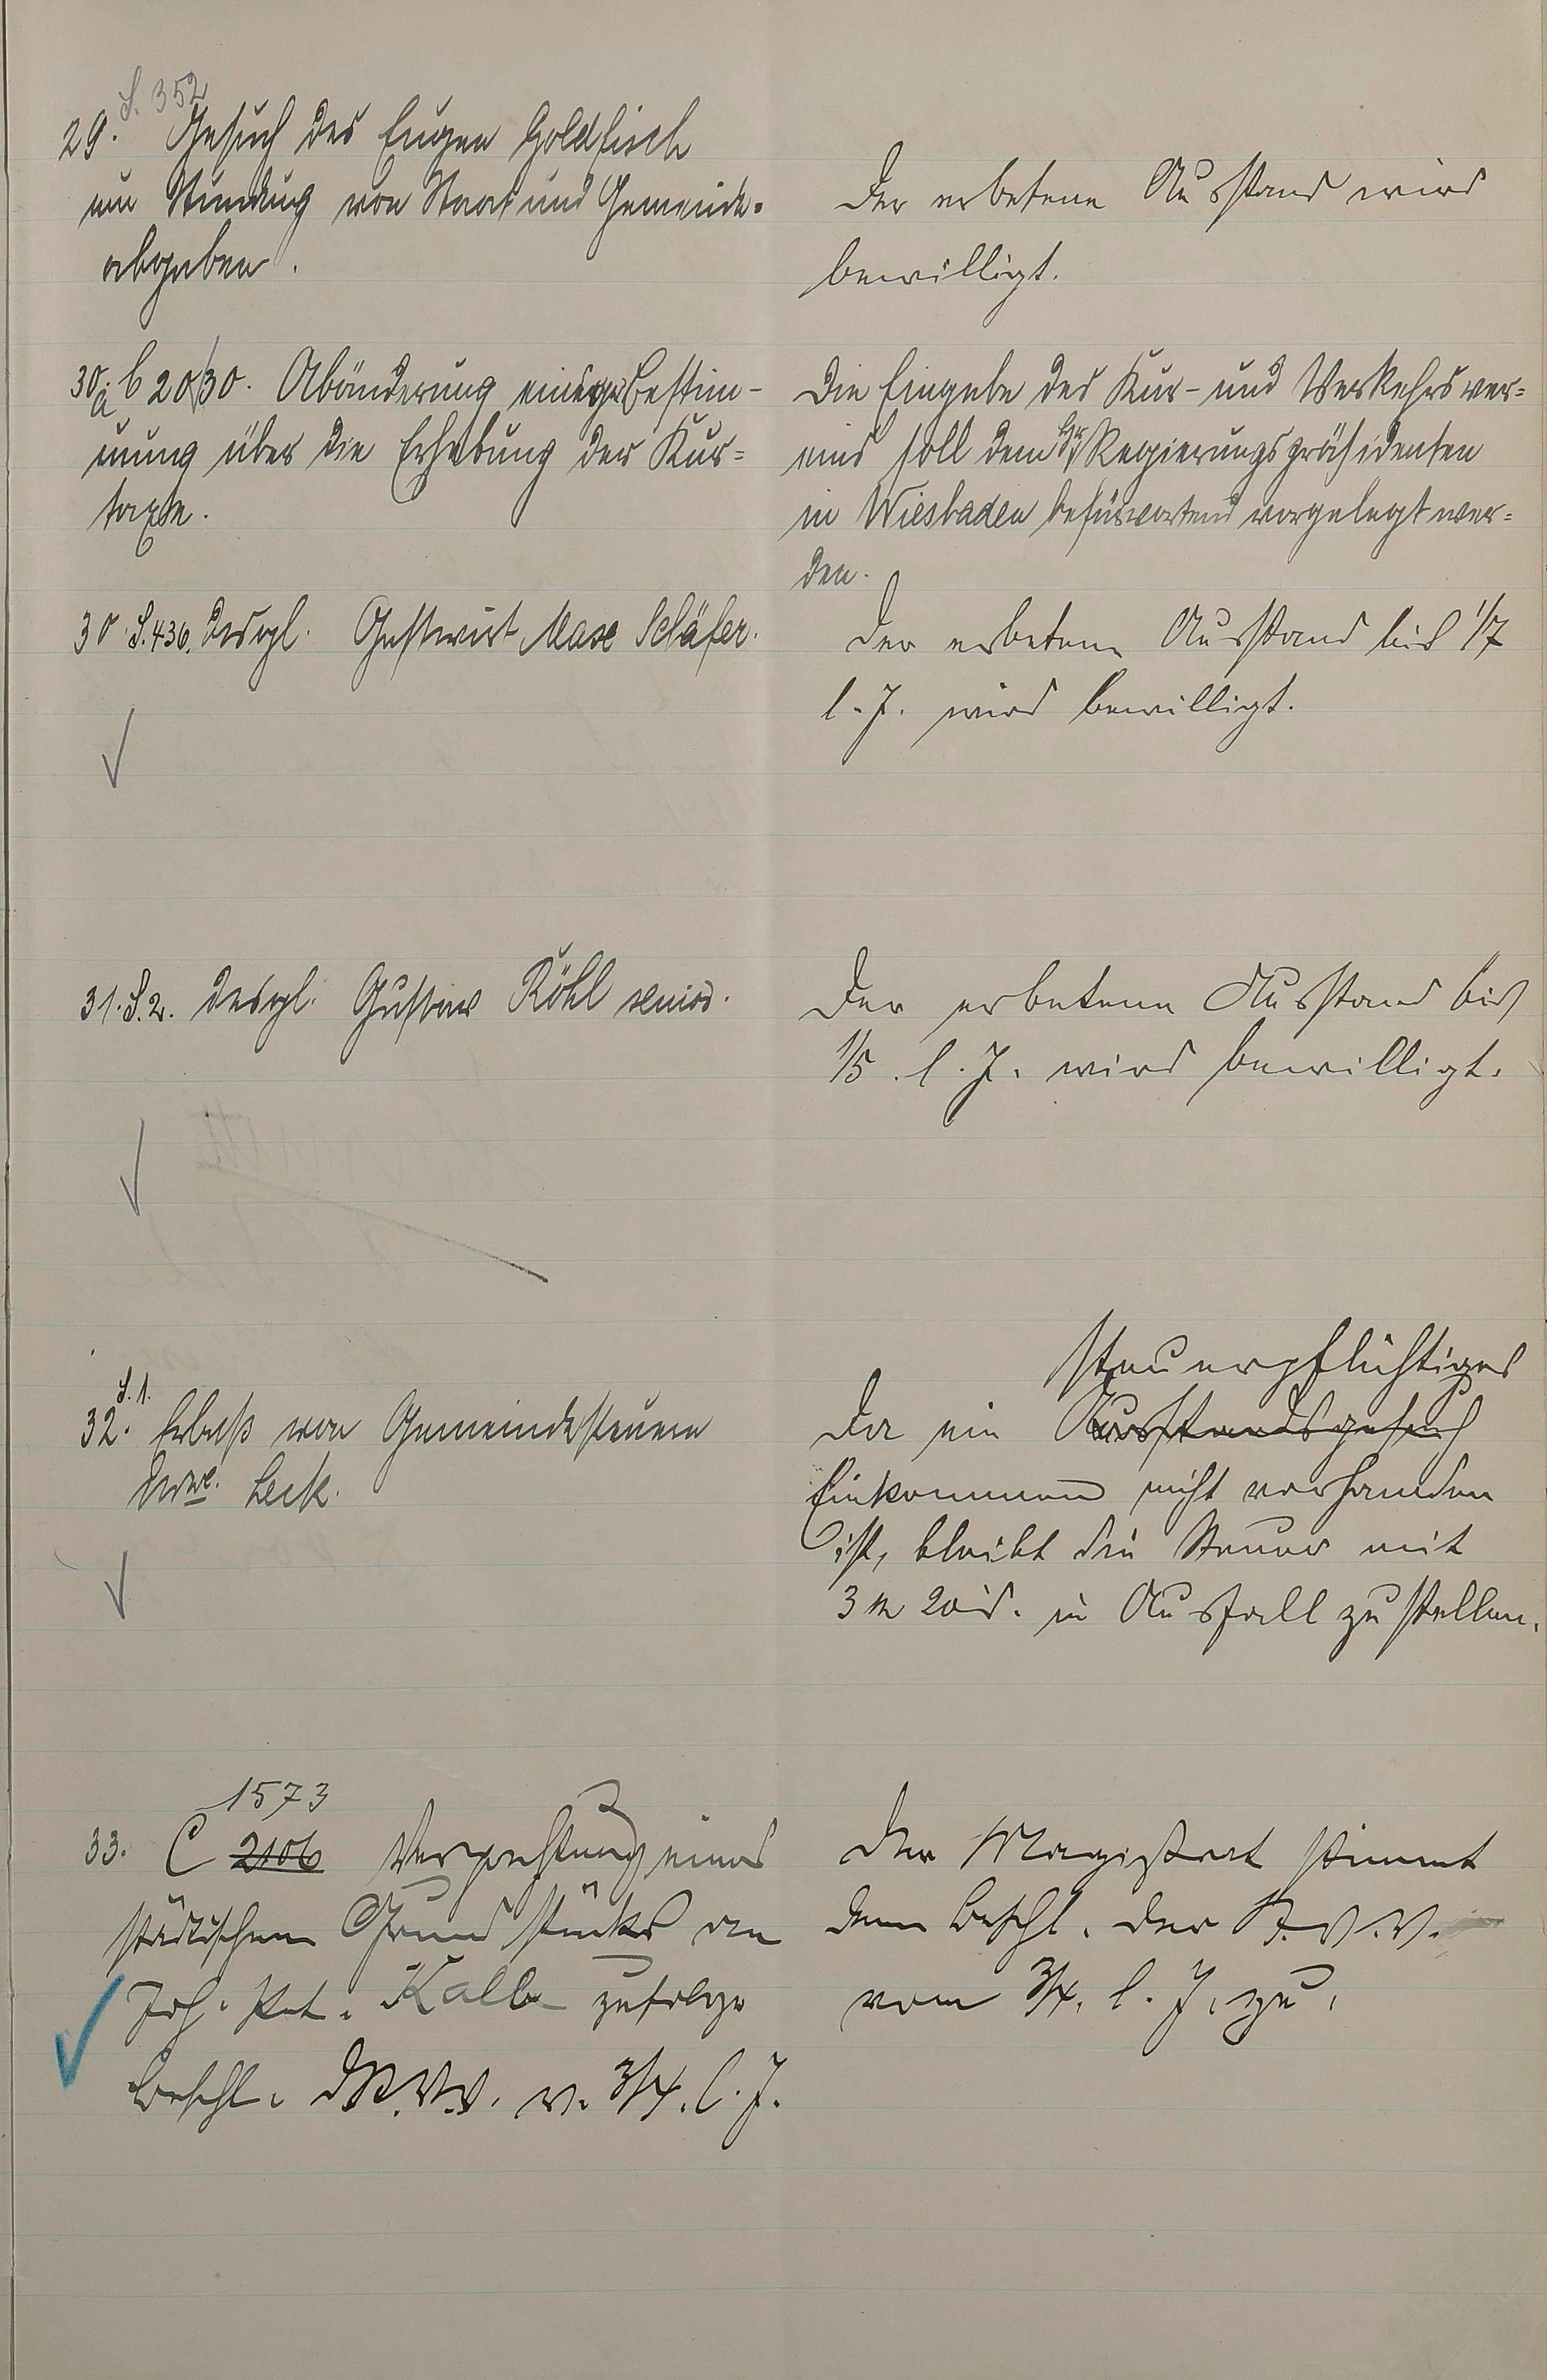 S. 352
29. Gesuch des Eugen Goldfisch
um Stundung von Staat und Gemeinde=
abgaben.
Der erbetene Ausstand wird
bewilligt.
30a. C 2030. Abänderung einiger Bestim-
mung über die Erhebung der Kur=
taxe.
Die Eingabe des Kur- und Verkehrsver=
eins soll dem Hr. Regierungspräsidenten
in Wiesbaden befürwortend vorgelegt wer=
den.
30 S. 436. desgl. Gastwirt Max Schäfer.
Der erbetene Ausstand bis 1/7
l. J. wird bewilligt.
31. S. 2. desgl. Gustav Röhl senior.
Der erbetene Ausstand bis
1/5. l. J. wird bewilligt.
S. 1.
32. Erlaß von Gemeindesteuern
Wwe. Leck.
steuerpflichtiges
Da ein Ausstandsgesuch
Einkommen nicht vorhanden
ist, bleibt die Steuer mit
3 M 20 d. in Ausfall zu stellen.
1573
33. C 2106 Verpachtung eines
städtischen Grundstücks an
Joh. Pet. Kalb zufolge
Beschl. d. St. V. V. v. 3/4. l. J.
Der Magistrat stimmt
dem Beschl. der St. V. V.
vom 3/4. l. J. zu.